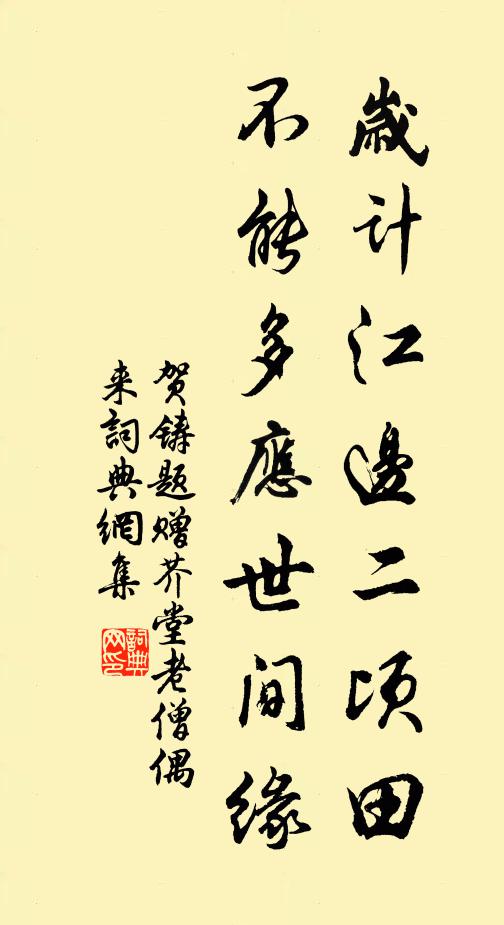 歲計江邊二頃田
不能多應世間緣
贺鑄题赠芥堂老僧偶
来詞典網集
詞典网印